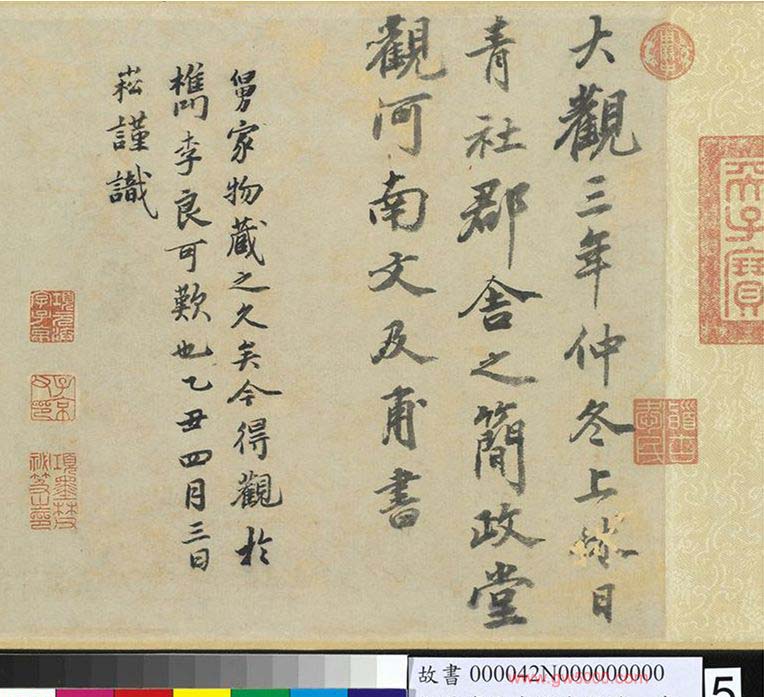 大觀三年仲冬上日
青社郡舍之簡政堂
觀河南文及甫書
舅家物藏之久矣今得觀於
檇李良可歎也乙丑四月三日
崧謹識
子京父印
故書 000042N000000000
5